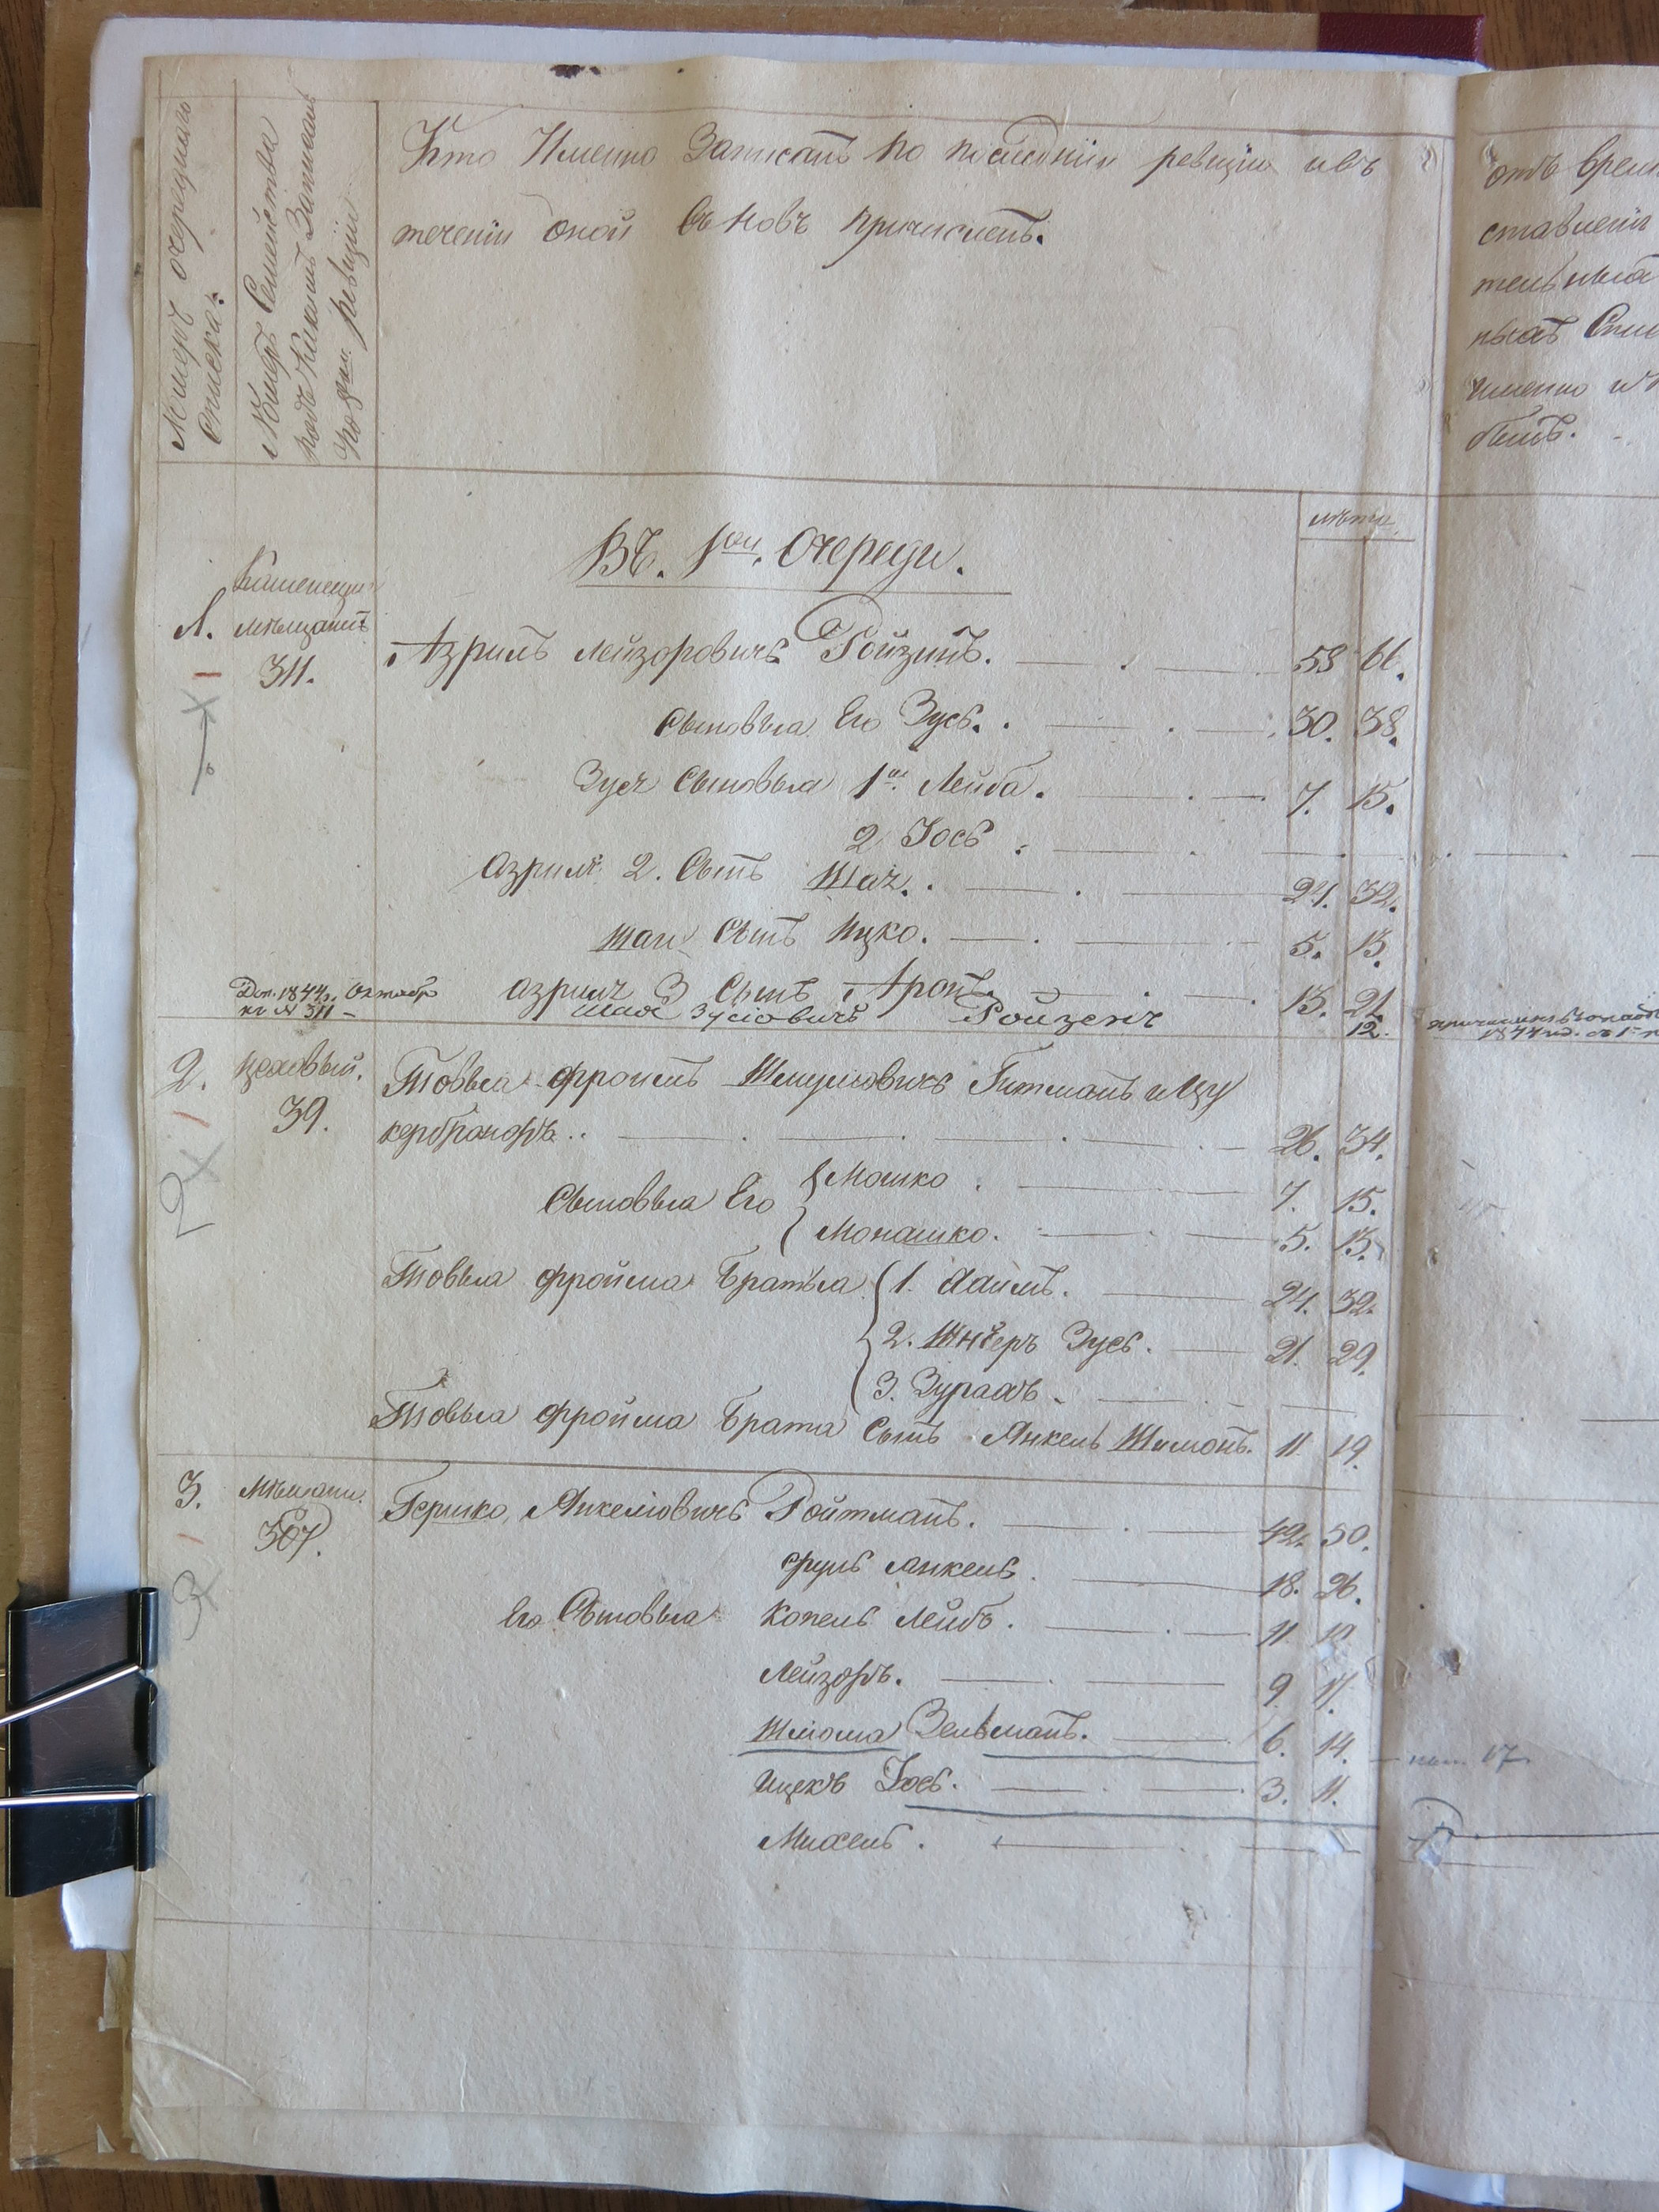 Нумеръ очереднаго
списка.
Нумеръ Семейства
подъ какимъ Записанъ
по 8й ревизіи
Кто Именно Записанъ по последнии ревизіи ивъ
теченіи оной въ новь причисленъ.
отъ врем
ставленія
тельныхъ
ныхъ Спис
именно и
былъ.
лѣта
Въ. 1ой. Очереди.
1. мѣщанинъ
311.
Азриль Лейзоровичъ Ройзинъ. 58 66.
Сыновья Его Зусь. 30. 38.
Зуся Сыновья 1й Лейба. 7. 15.
2 Іось.
Азриля 2. Сынъ Шая. 24. 32.
Шаи Сынъ Ицко. 5. 13.
Азриля 3 Сынъ Аронъ. 13. 21
Доп. 1844г. Октября
къ № 311 - Шая Зусіовичъ Ройзенъ 12.
2. Цеховый.
39.
Товья фроимъ Шмулiовичъ Гитманъ и Цу
кербрандъ.. 26. 34.
Сыновья Его Мошко. 7. 15.
Монашко. 5. 13.
Товья фройма Братья 1. Хаимъ. 24. 32.
2. Шнееръ Зусь. 21. 29.
3. Зурахъ.
Товья фройма Брата Сынъ Янкель Шимонъ. 11 19.
3. Мѣщани.
307.
Гершко Янкелiовичъ Ройтманъ. 42. 50.
Сруль Янкель. 18. 26.
Его Сыновья Копель Лейбъ. 11 19
Лейзоръ. 9 17.
Шліома Зельманъ. 6. 14.
Ицекъ Іось. 3. 11.
Михель.